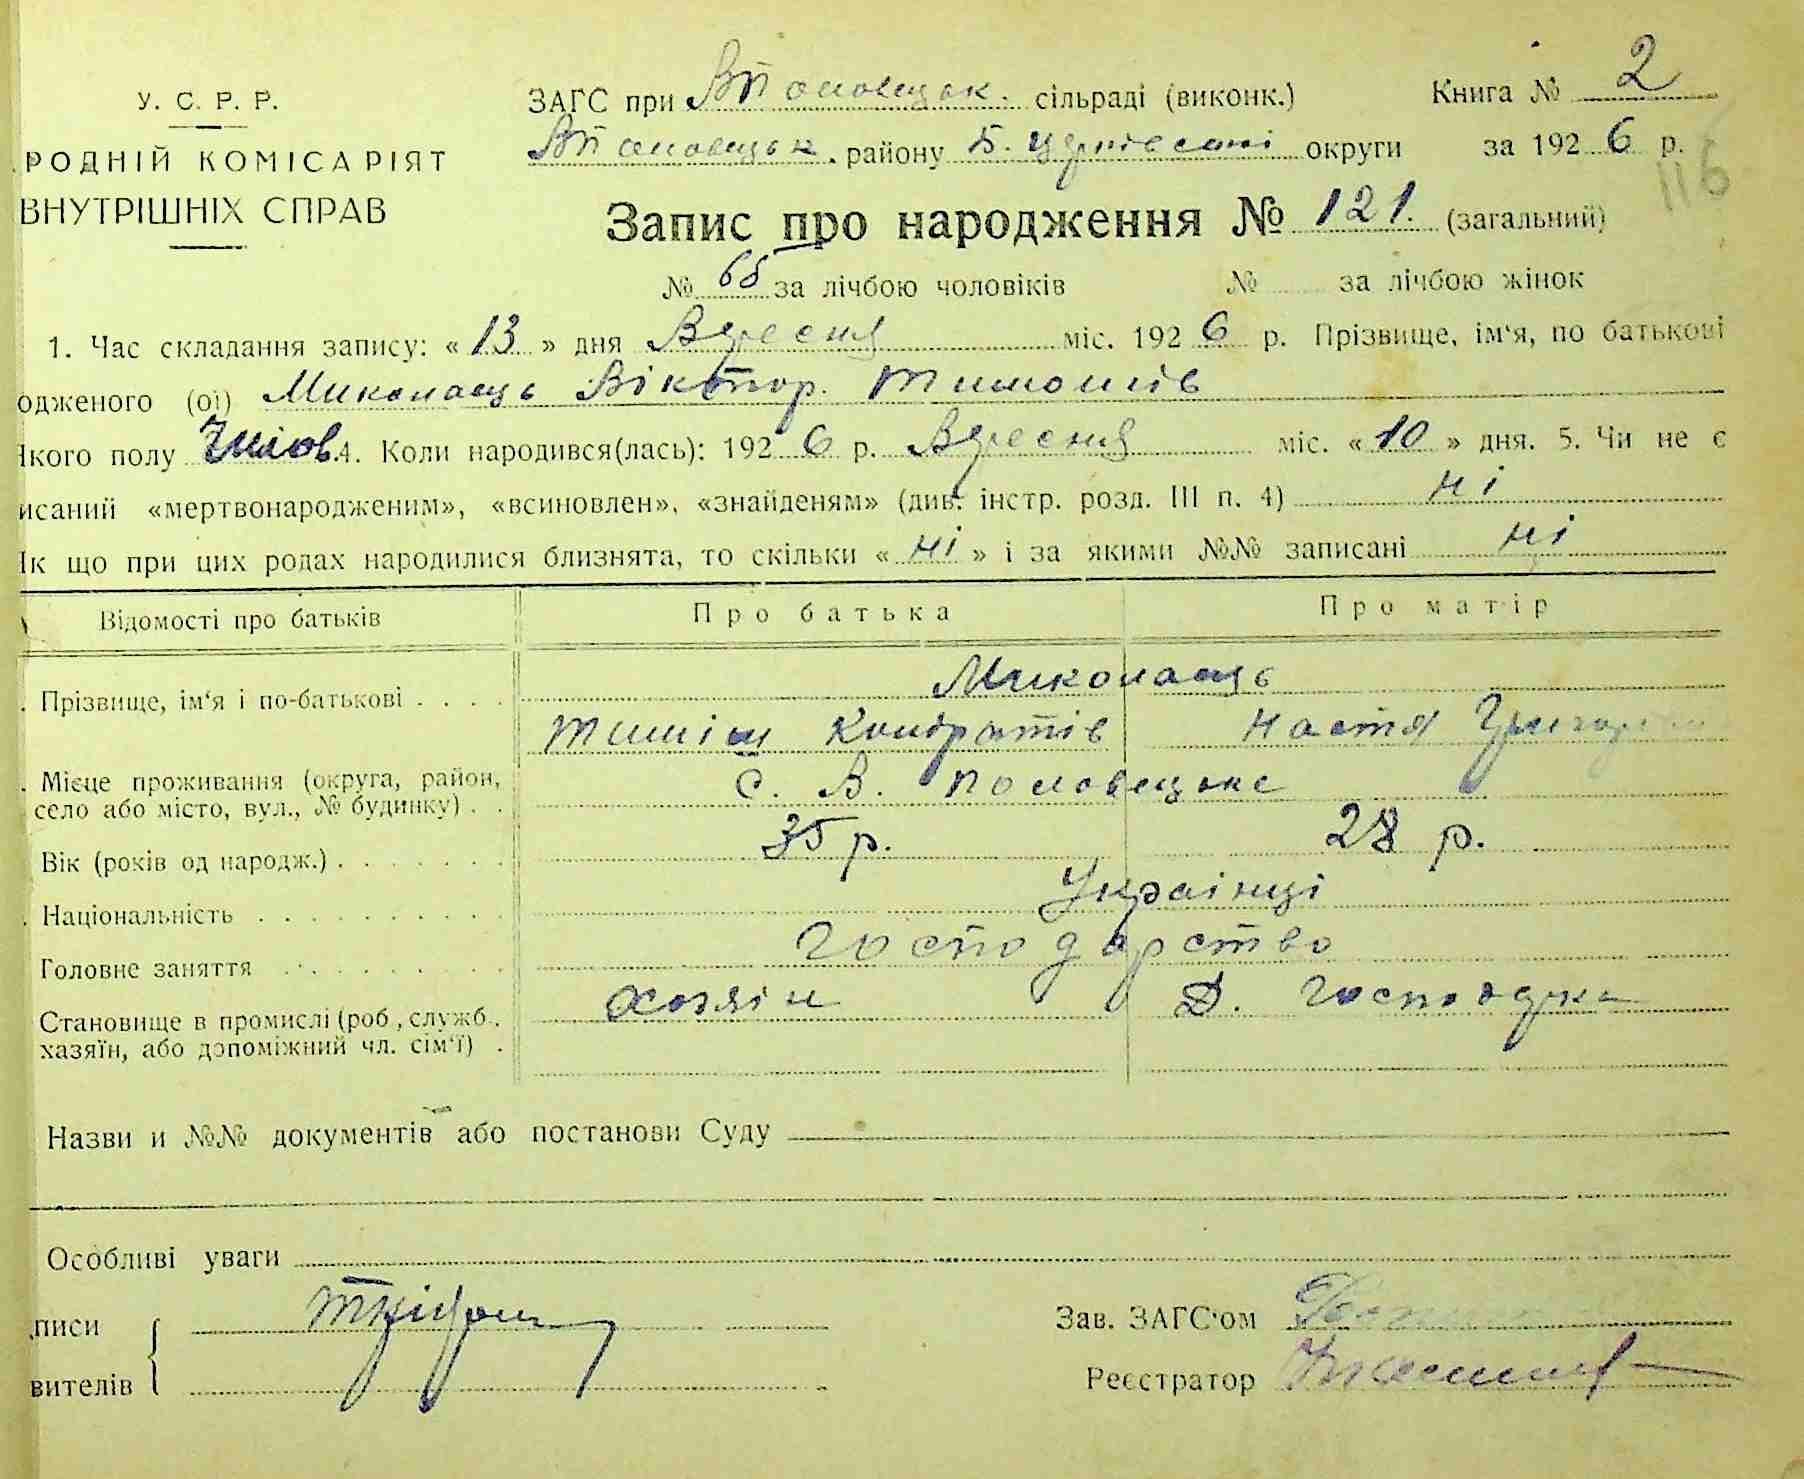 У. С. Р. Р.
РОДНІЙ КОМІСАРІЯТ
ВНУТРІШНІХ СПРАВ
ЗАГС при ВПоловецьк. сільраді (виконк.)
Книга № 2
ВПоловецьк. району Б. Церківські округи за 1926 р.
116
Запис про народження № 121. (загальний)
№ 65 за лічбою чоловіків № за лічбою жінок
1. Час складання запису: « 13 » дня Вересня міс. 1926 р. Прізвище, ім‘я, по батькові
одженого (ої) Миколаєць Віктор. Тимошів
якого полу Чолов. 4. Коли народився(лась): 1926 р. Вересня міс. « 10 » дня. 5. Чи не є
исаний «мертвонародженим», «всиновлен», «знайденям» (див. інстр. розд. III п. 4) ні
Як що при цих родах народилися близнята, то скільки « ні » і за якими №№ записані ні
Відомості про батьків
Про батька
Про матір
Прізвище, ім‘я і по-батькові . . . .
Миколаєць
Тиміш Кондратів
Настя Григор
Місце проживання (округа, район,
село або місто, вул., № будинку) . .
с. В. Половецьке
Вік (років од народж.) . . . . . . .
35 р.
28 р.
Національність . . . . . . . . . .
Українці
Головне заняття . . . . . . . .
Господарство
Становище в промислі (роб., служб.,
хазяїн, або допоміжний чл. сім‘ї) .
Хозяін
Д. Господарка
Назви и №№ документів або постанови Суду
Особливі уваги
писи
вителів
Зав. ЗАГС‘ом
Реєстратор